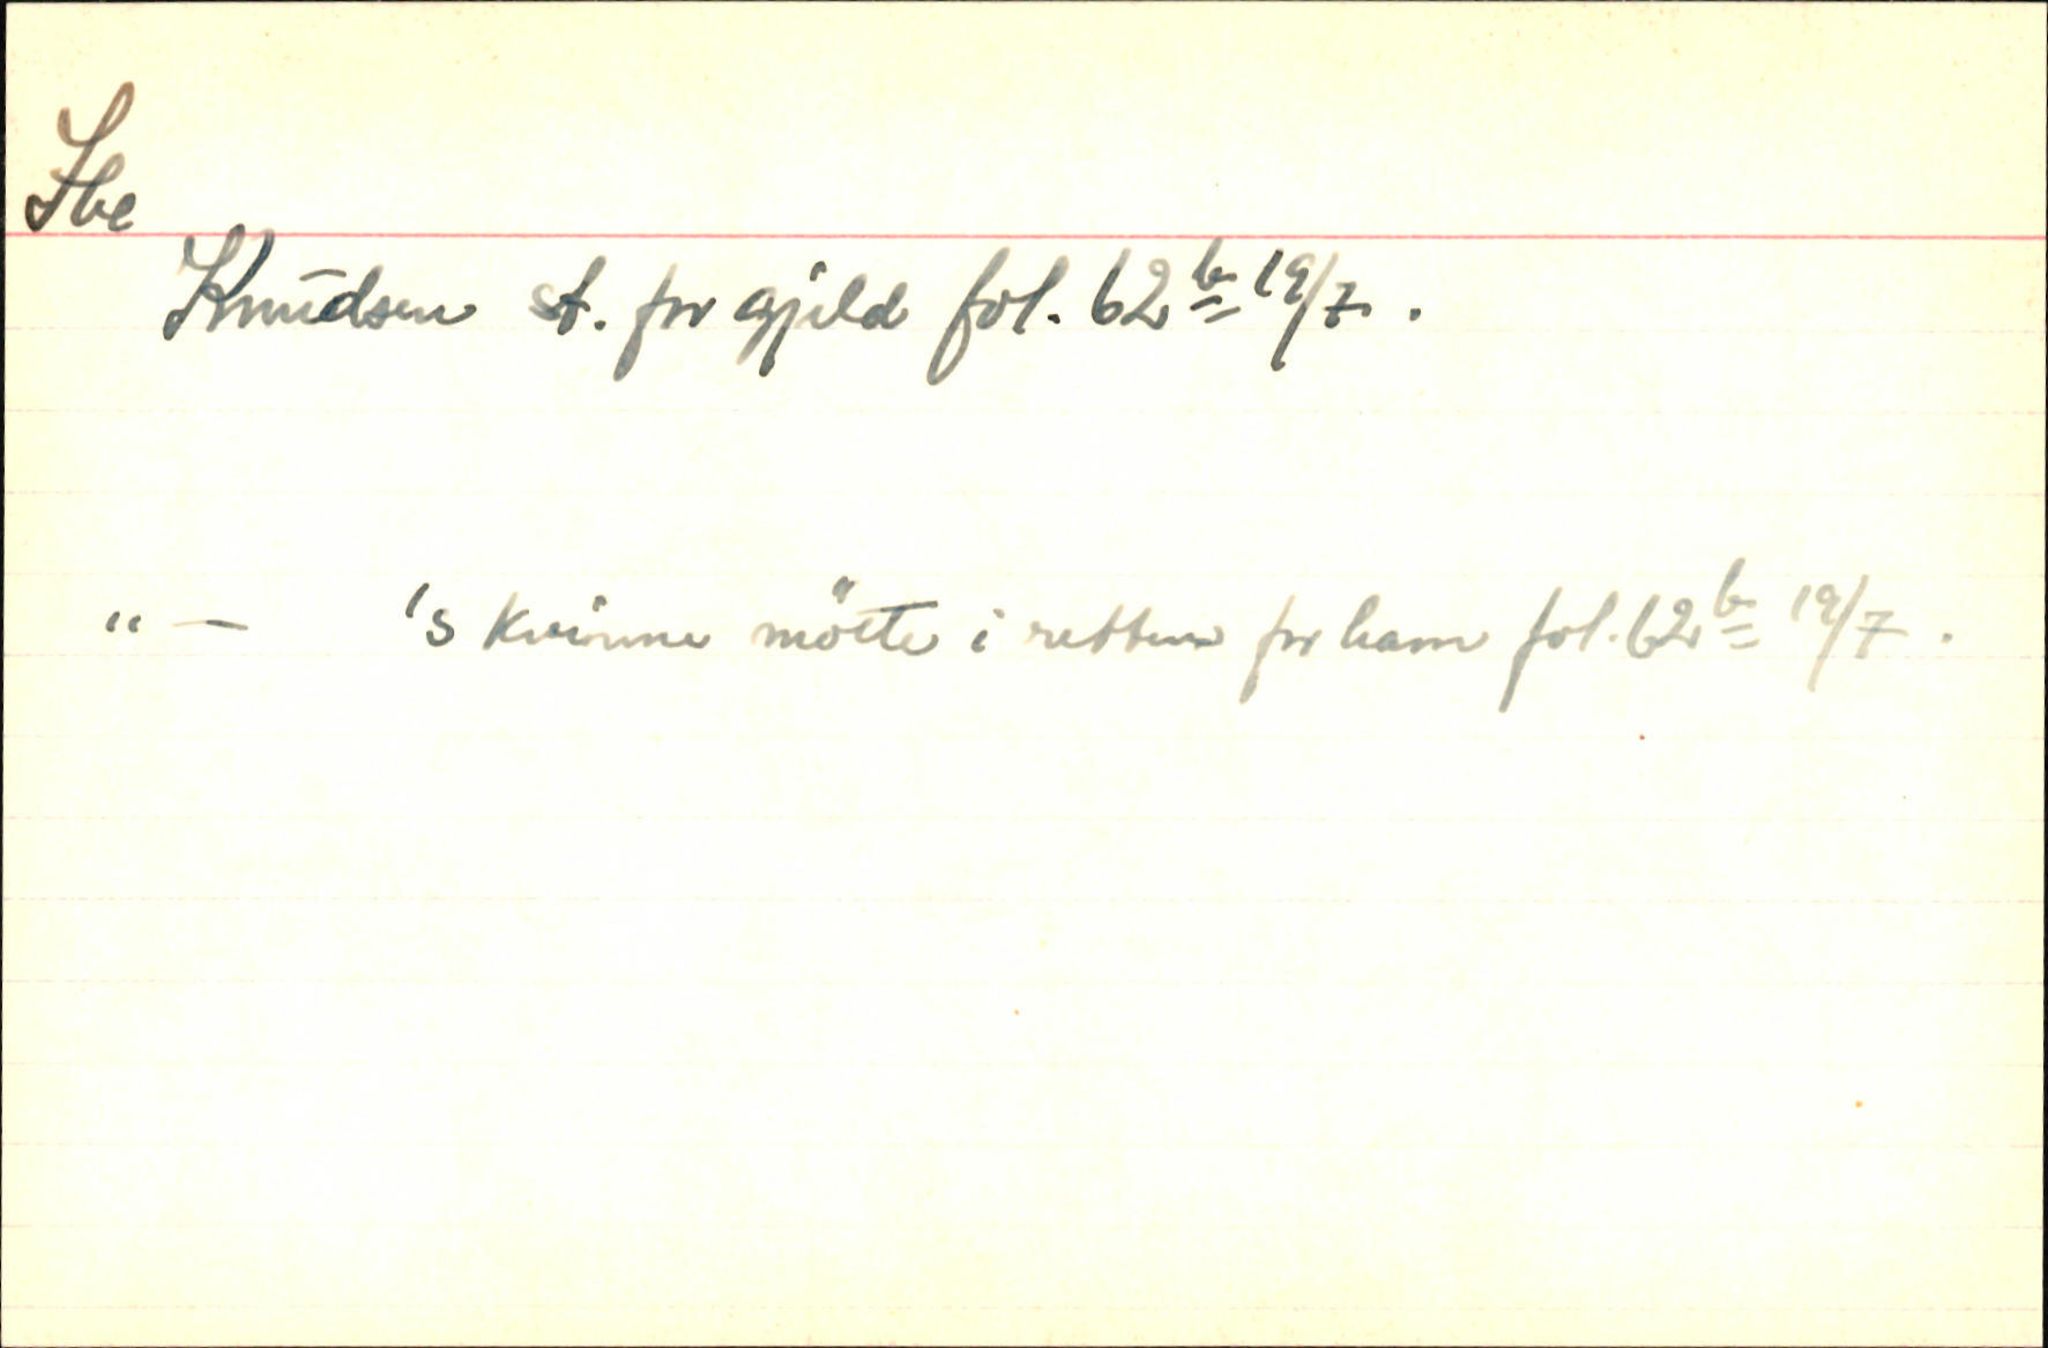 Ibe
Knudsen st. for gjeld fol. 62b 19/7.
"— 's kvinne mötte i retten for ham fol. 62b 19/7.